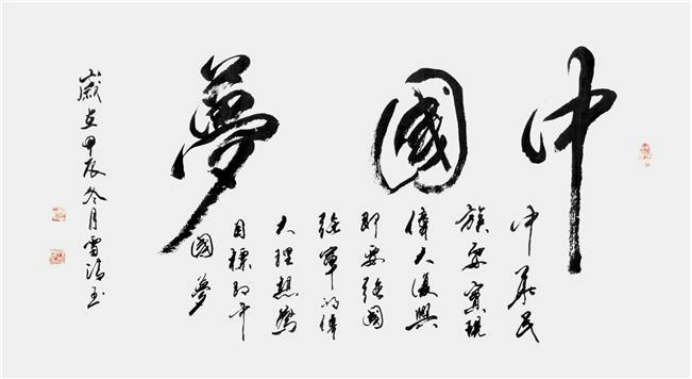 中國夢
中華民
族要實現
偉大復興
即要強國
強軍的偉
大理想
目標即中
國夢
歲在甲辰冬月雪